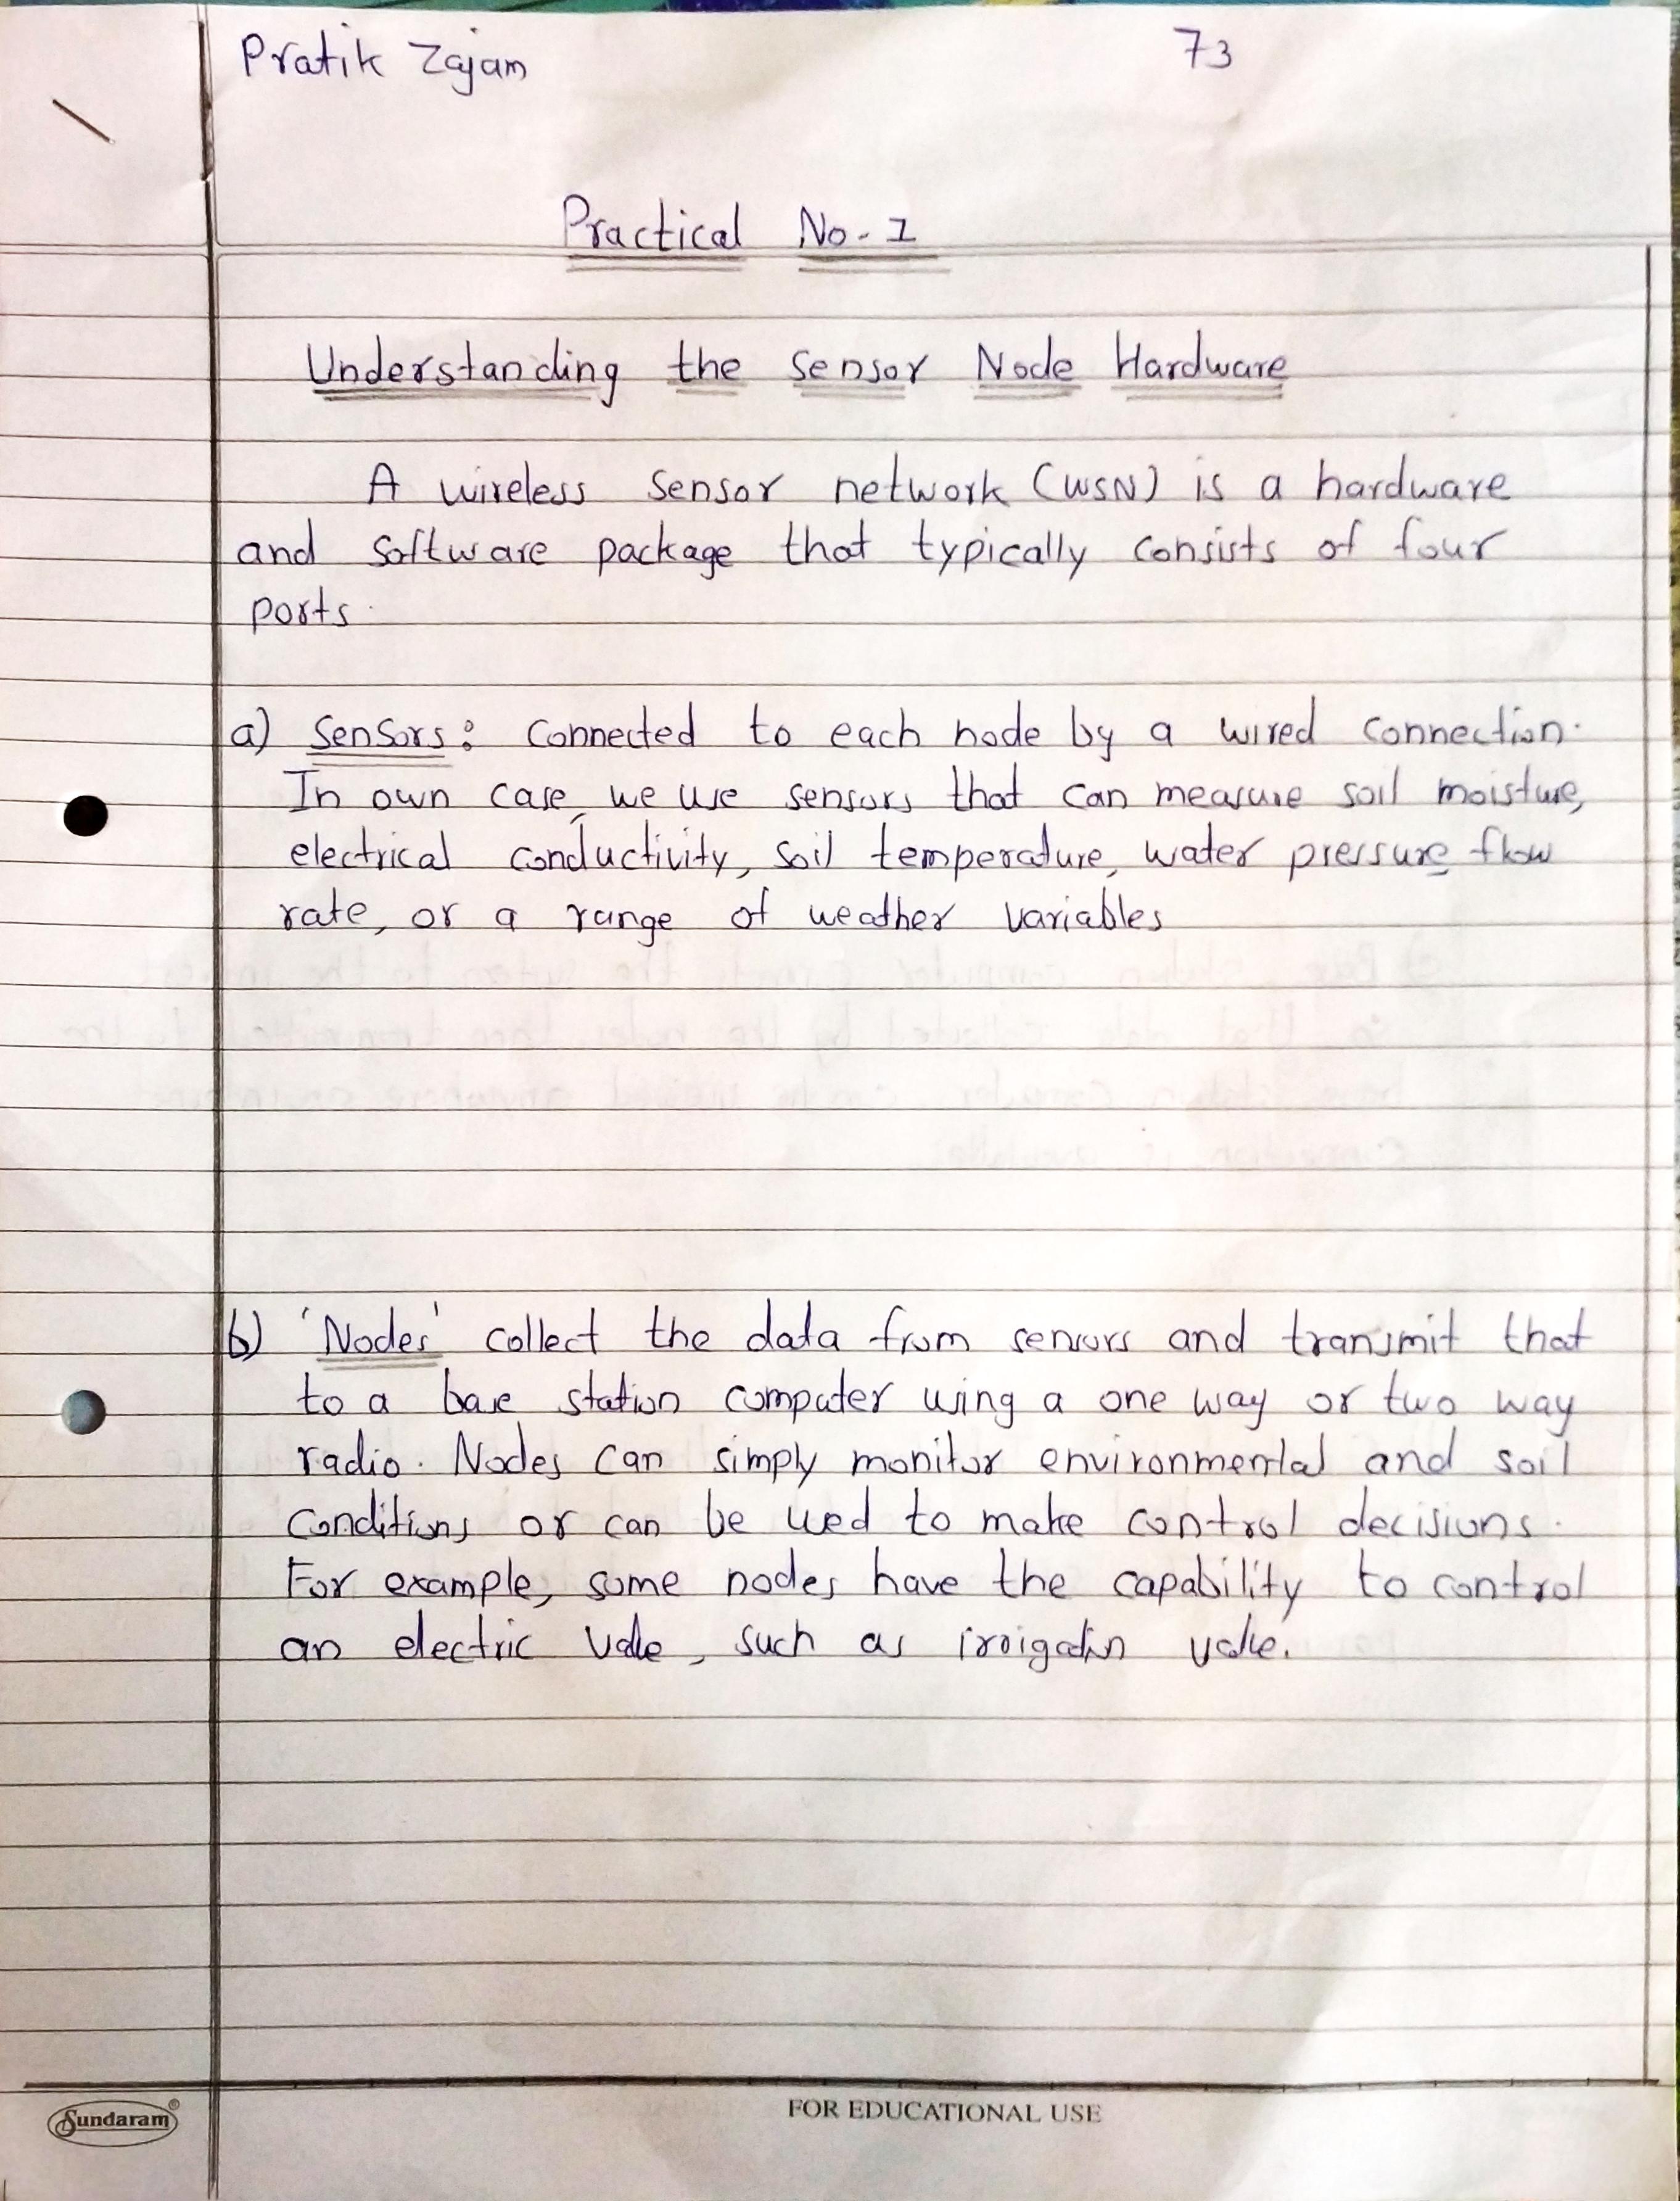 Pratik Zajam 73
Practical No. 1
Understanding the Sensor Node Hardware
A wireless sensor network (WSN) is a hardware
and software package that typically consists of four
ports.
a) Sensors: Connected to each node by a wired connection.
In own case, we use sensors that can measure soil moisture,
electrical conductivity, soil temperature, water pressure flow
rate, or a range of weather variables
b) 'Nodes' collect the data from sensors and transmit that
to a base station computer using a one way or two way
radio. Nodes can simply monitor environmental and soil
conditions or can be used to make control decisions.
For example, some nodes have the capability to control
an electric valve, such as irrigation valve.
Sundaram®
FOR EDUCATIONAL USE